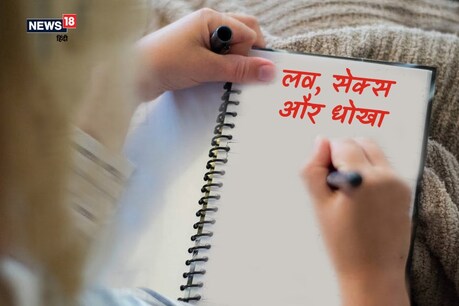 NEWS 18
हिंदी
लव, सेक्स
और धोखा